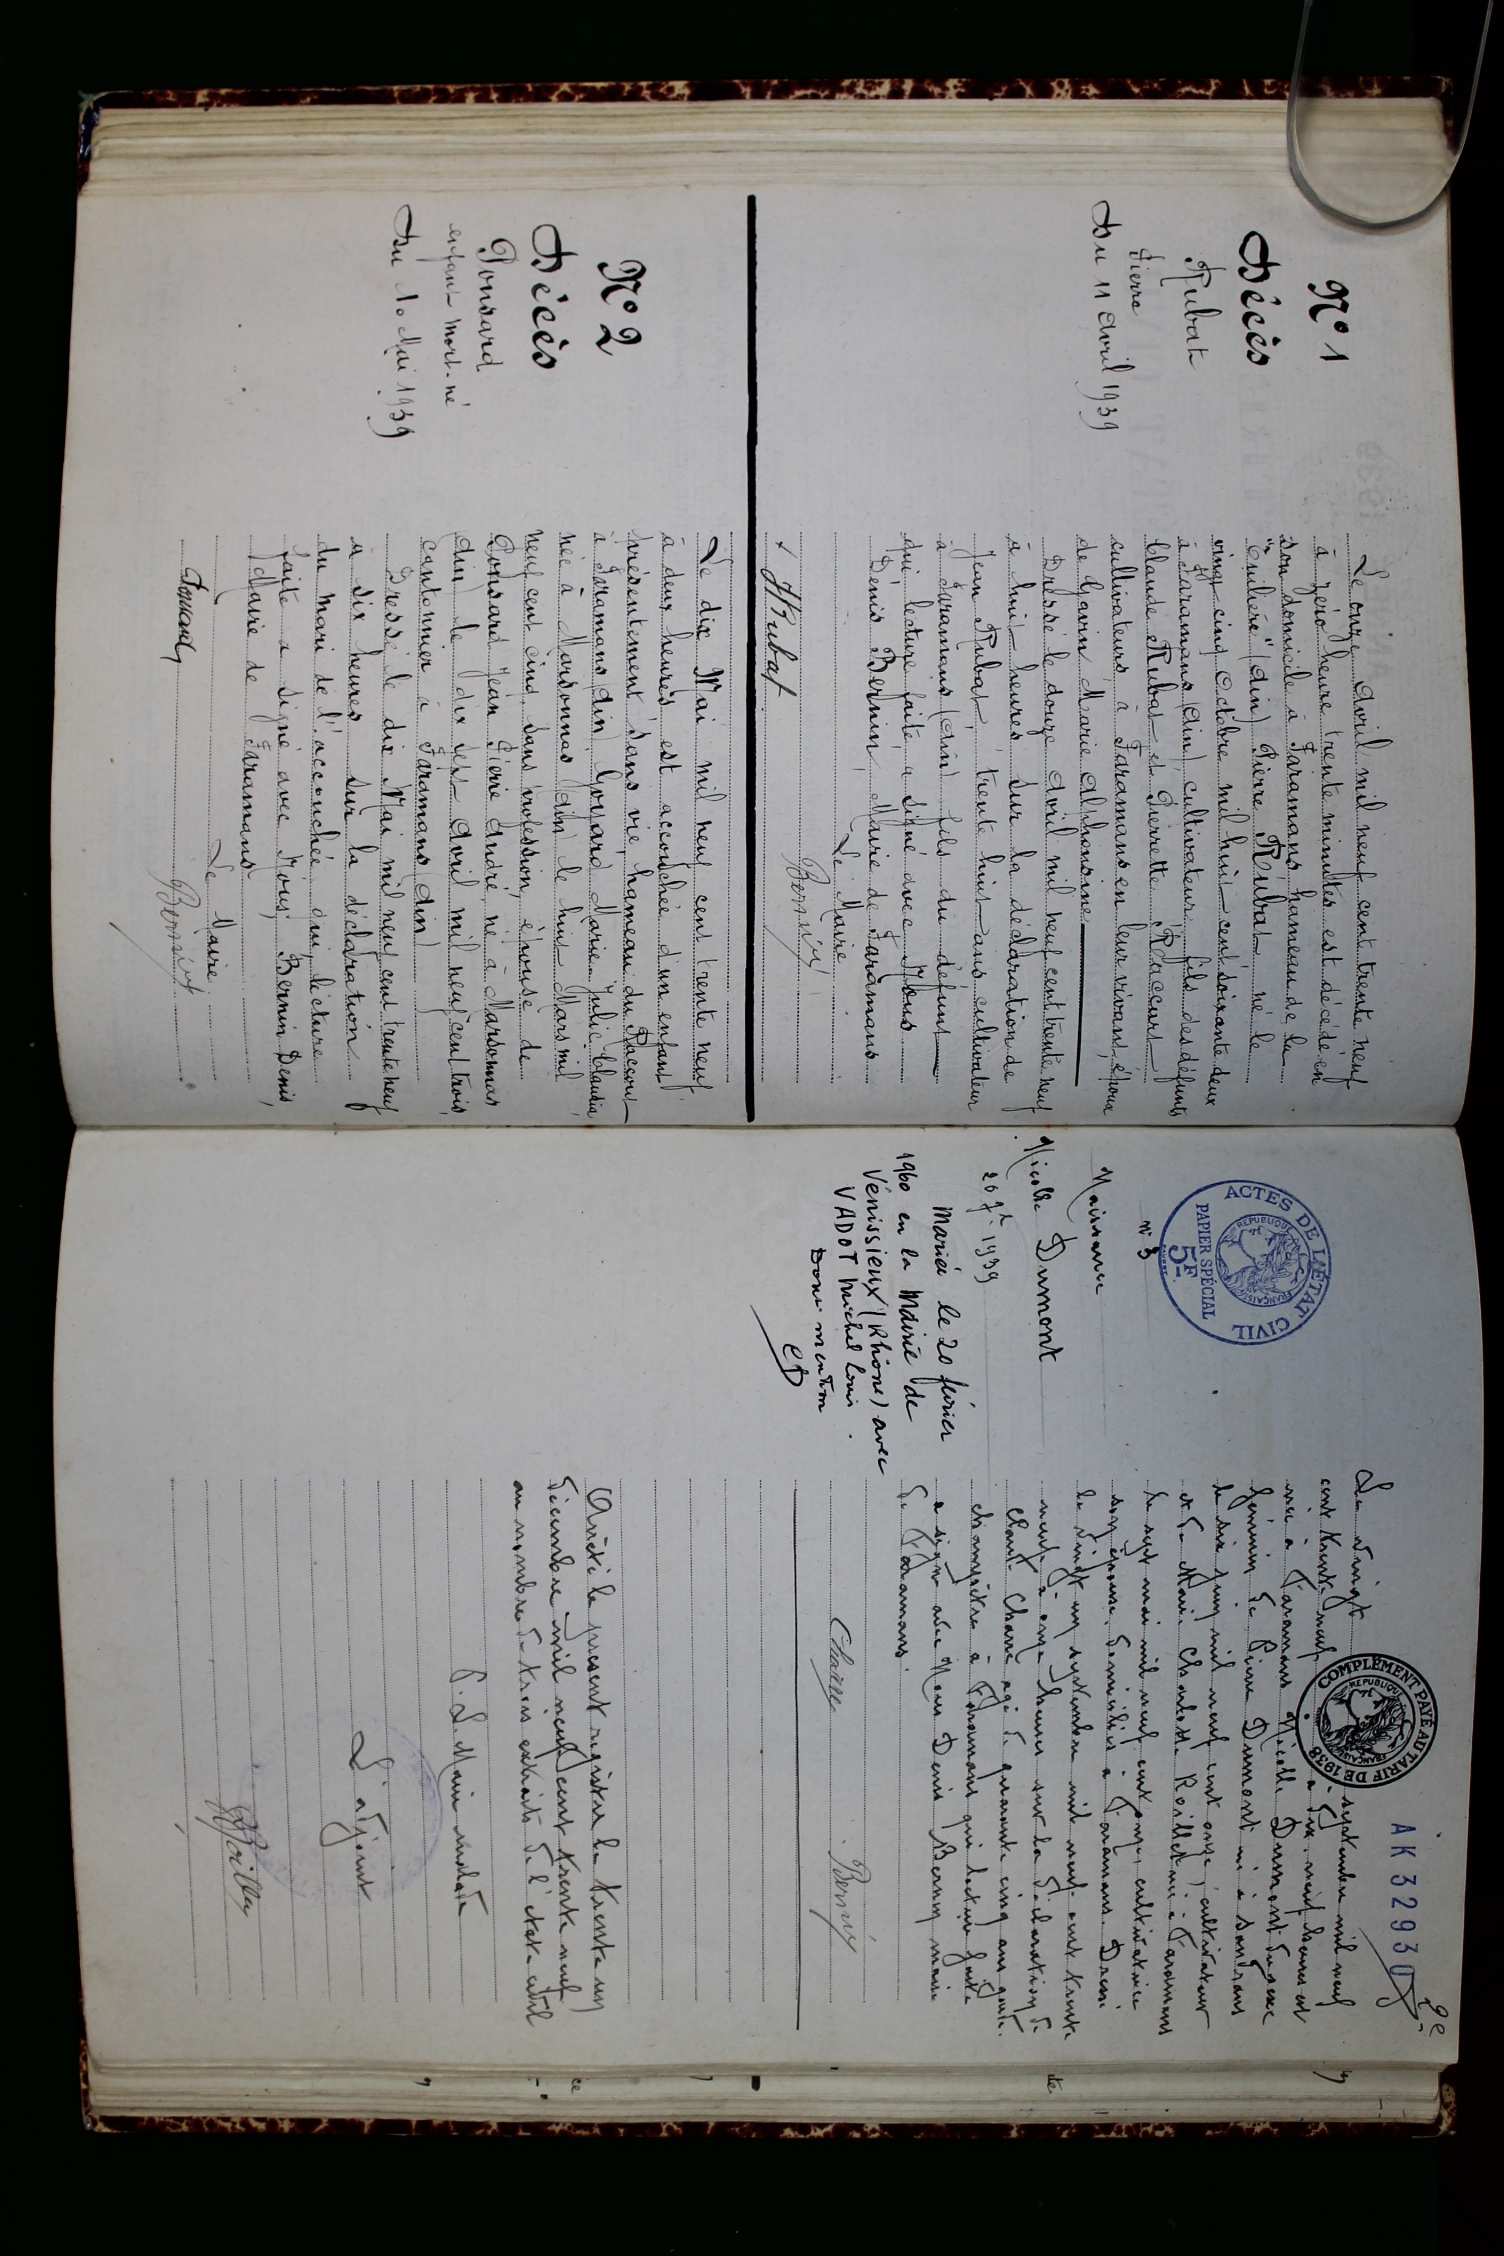 N° 1
Décès
Rubat
Pierre
Du 11 Avril 1939
Le onze Avril mil neuf cent trente neuf
à zéro heure trente minutes est décédé en
son domicile à Faramans, hameau de la
(Ain) Pierre Rubat né le
vingt cinq Octobre mil huit cent soixante deux
à Faramans (Ain), cultivateur, fils des défunts
Claude Rubat et Pierrette Raccurt
cultivateurs à Faramans en leur vivant, époux
de Gavin Marie Alphonsine
Dressé le douze Avril mil neuf cent trente neuf
à huit heures sur la déclaration de
Jean Rubat, trente huit ans cultivateur
à Faramans (Ain) fils du défunt
qui lecture faite, a signé avec Nous
Denis Bernin, Maire de Faramans
Le Maire
Rubat
Bernin
N° 2
Décès
Ponsard
enfant mort-né
Du 10 Mai 1939
Le dix Mai mil neuf cent trente neuf
à deux heures est accouchée d'un enfant
présentement sans vie, hameau du Raccourt
à Faramans (Ain) Goyard Marie-Julie-Claudia,
née à Marsonnas (Ain) le huit Mars mil
neuf cent cinq, sans profession, épouse de
Ponsard Jean Pierre André, né à Marsonnas
(Ain) le dix sept Avril mil neuf cent trois,
cantonnier à Faramans (Ain)
Dressé le dix Mai mil neuf cent trente neuf
à six heures sur la déclaration
du mari de l'accouchée qui, lecture
faite a signé avec Nous, Bernin Denis,
Maire de Faramans
Le Maire
Ponsard
Bernin
2e
AK 32930
ACTES DE L'ÉTAT CIVIL
RÉPUBLIQUE FRANÇAISE
PAPIER SPÉCIAL
5F
COMPLÉMENT PAYÉ AU TARIF DE 1938
RÉPUBLIQUE FRANÇAISE
n° 3
Naissance
Nicolle Dumont
1939
Mariée le 20 février
1960 en la Mairie de
Vénissieux (Rhône) avec
VADOT Michel Louis.
Dont mention
Le vingt septembre mil neuf
cent trente neuf à dix neuf heures est
née à Faramans Nicolle Dumont du sexe
féminin de Pierre Dumont né à Sandrans
le six juin mil neuf cent onze, cultivateur
et de Marie Charlotte Reillet née à Faramans
le sept mai mil neuf cent onze, cultivatrice
son épouse, domiciliés à Faramans. Dressé
le vingt un septembre mil neuf cent trente
neuf à onze heures sur la déclaration de
Claude Charre agé de quarante cinq ans garde
champêtre à Faramans qui lecture faite
a signé avec Nous Denis Bernin maire
de Faramans.
Charre
Bernin
Arrêté le présent registre le trente un
décembre mil neuf cent trente neuf
au nombre de trois extraits de l'état civil
P. Le Maire malade
L'adjoint